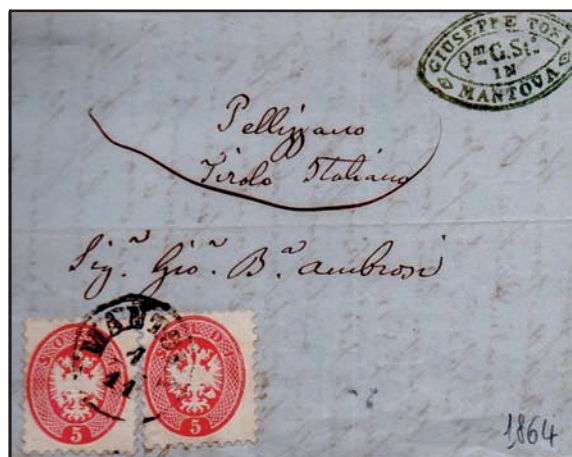 GIUSEPPE TOSI
Qm G. Sta
IN
MANTOVA
Pellizzano
Tirolo Italiano
Sig.r Gio. Ba Ambrosi
SOLDI
5
SOLDI
5
1864